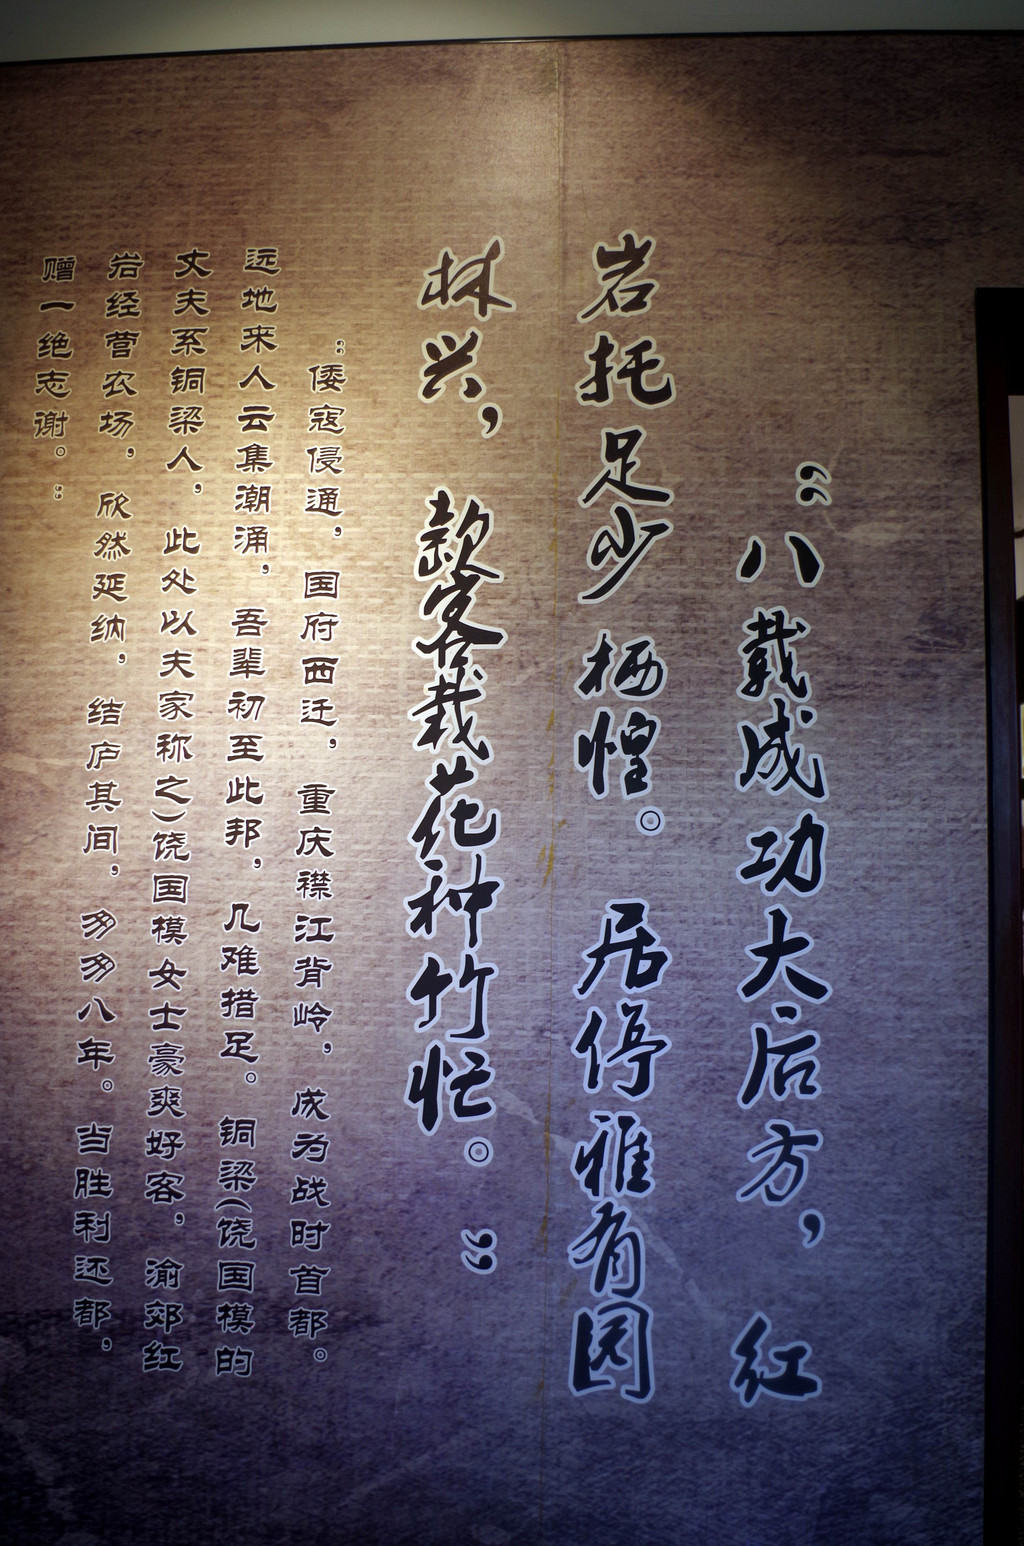 “八载成功大后方，红
岩托足少栖惶。居停雅有园
林兴，款客栽花种竹忙。”
“倭寇侵逼，国府西迁，重庆襟江背岭，成为战时首都。
远地来人云集潮涌，吾辈初至此邦，几难措足。铜梁（饶国模的
丈夫系铜梁人，此处以夫家称之）饶国模女士豪爽好客，渝郊红
岩经营农场，欣然延纳，结庐其间，匆匆八年。当胜利还都，
赠一绝志谢。”